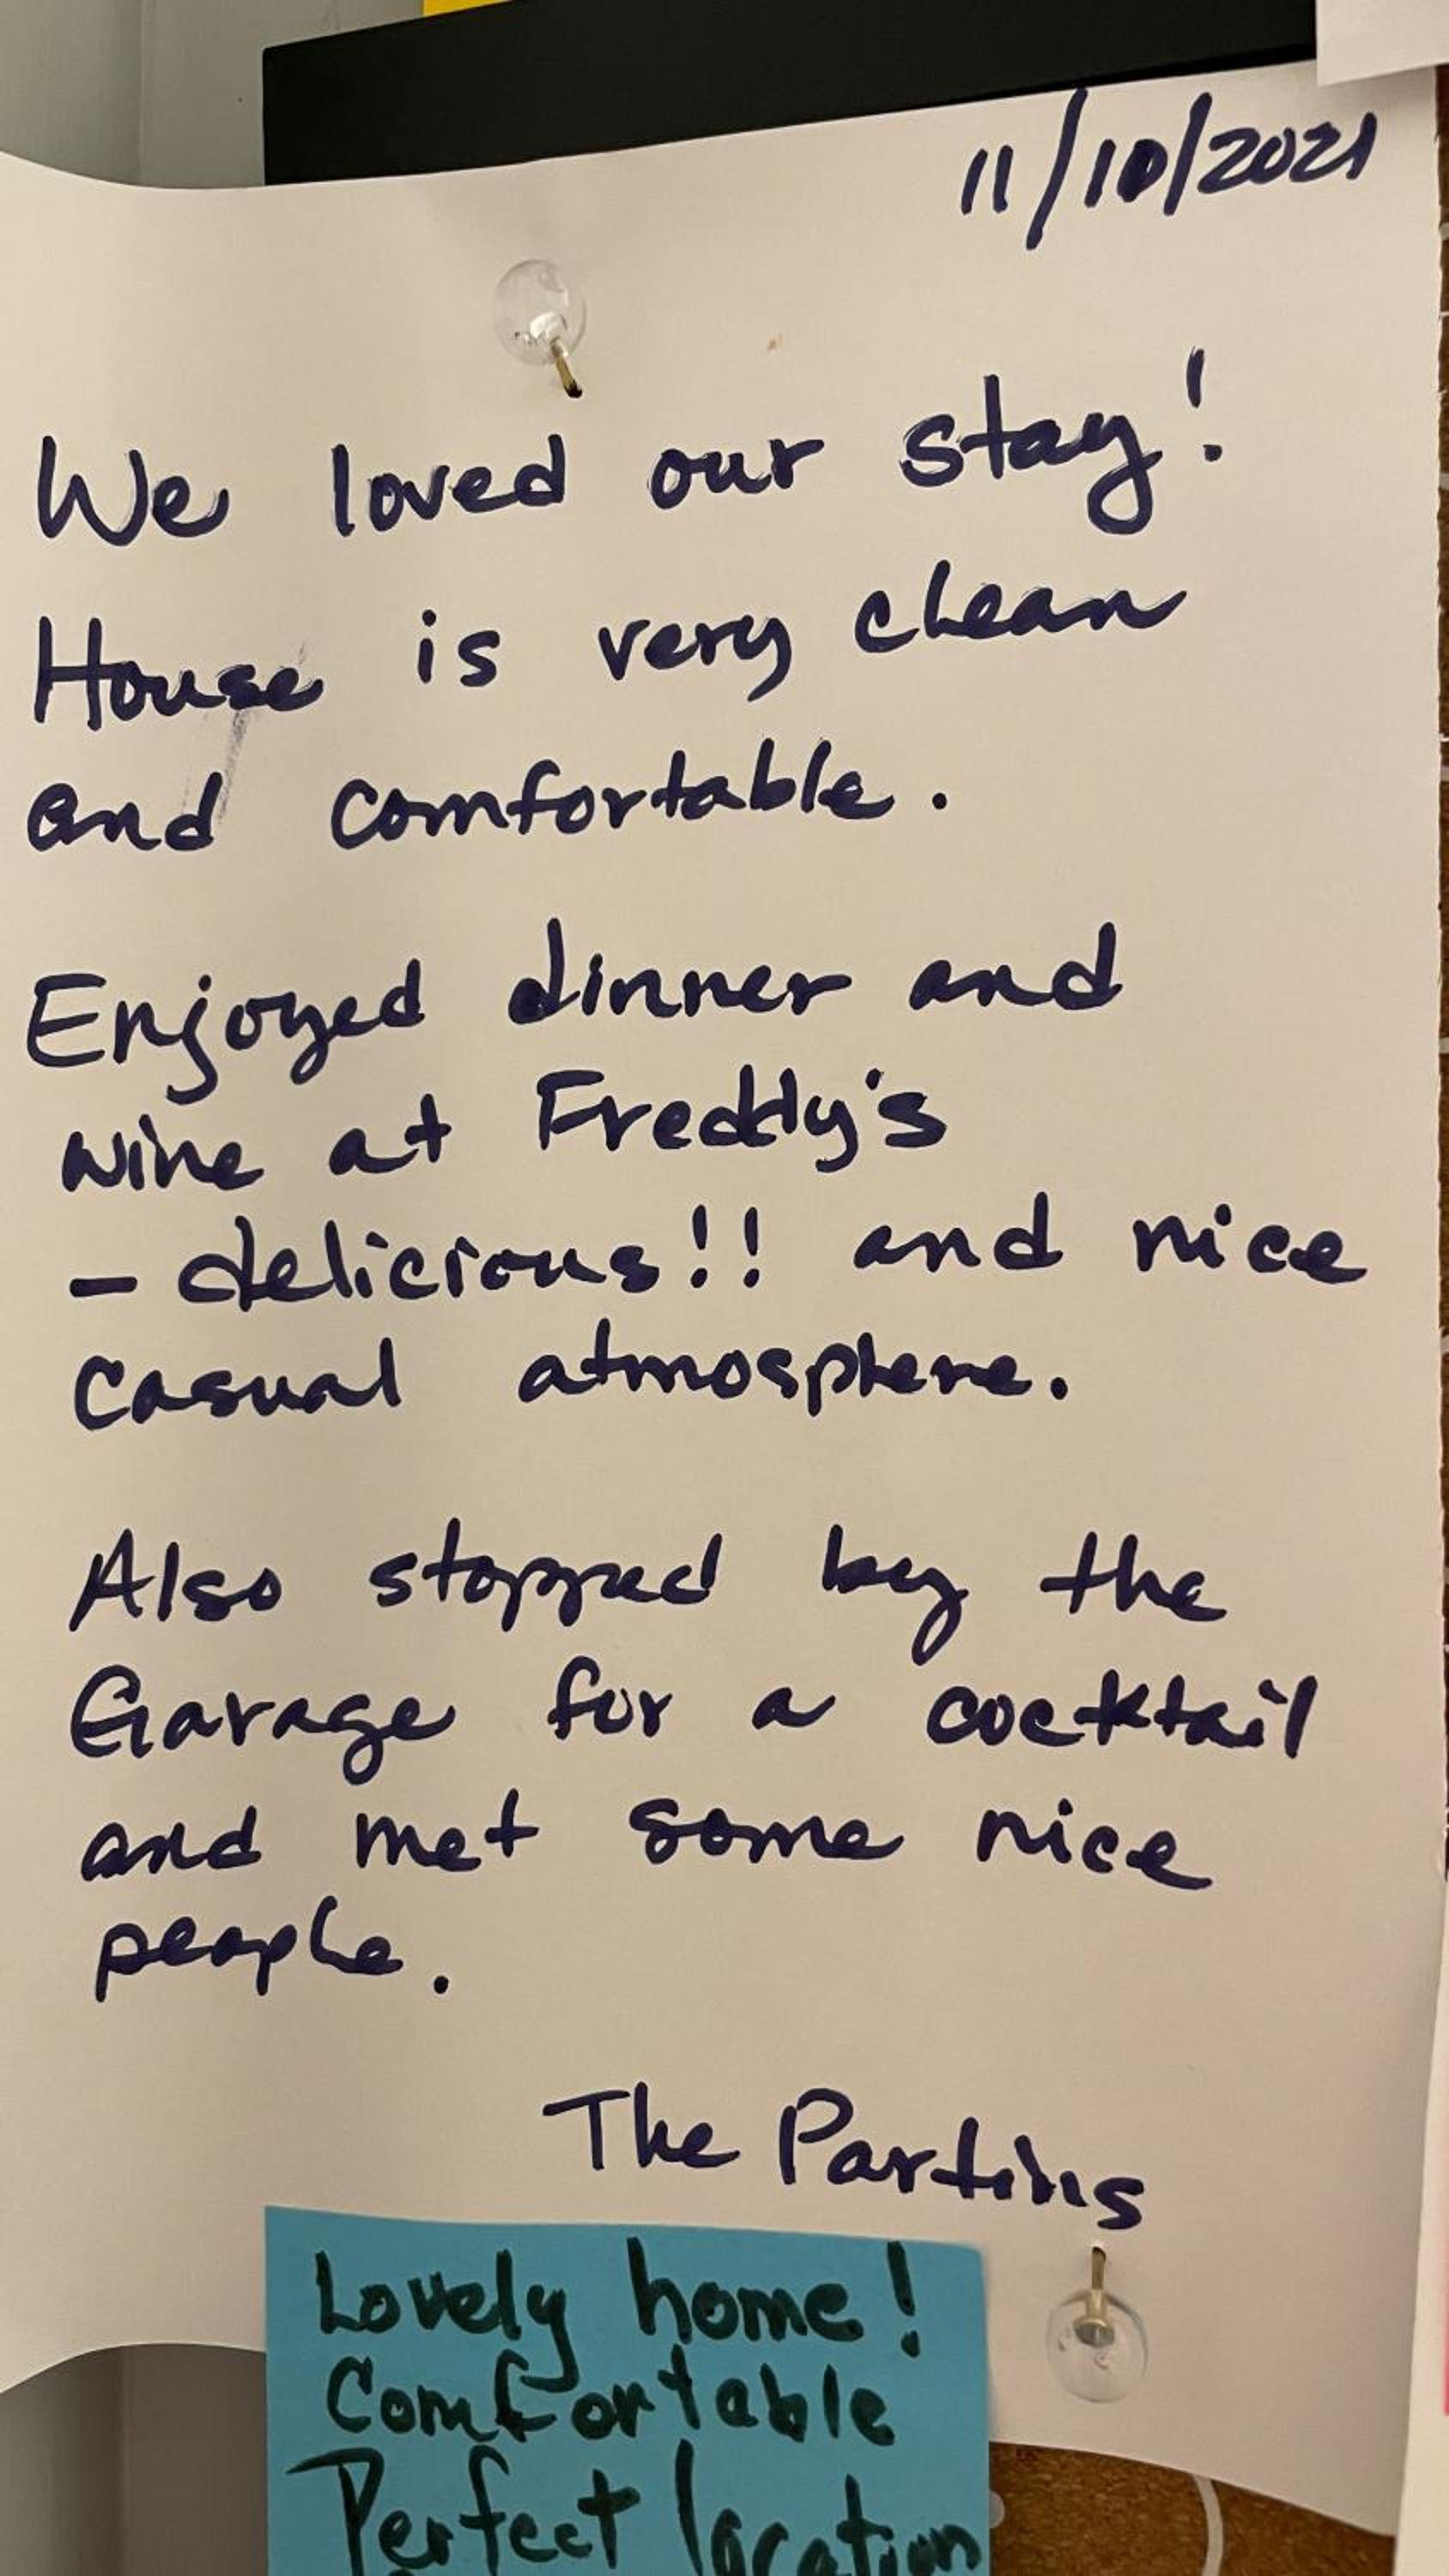 11/10/2021
We loved our stay!
House is very clean
and comfortable.
Enjoyed dinner and
wine at Freddy's
- delicious!! and nice
casual atmosphere.
Also stopped by the
Garage for a cocktail
and met some nice
people.
The Partins
Lovely home!
Comfortable
Perfect location